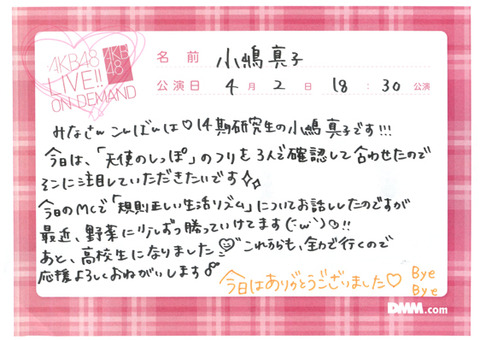 AKB48
LIVE!!
ON DEMAND
AKB
48
名前 小嶋真子
公演日 4月2日 18:30公演
みなさん こんばんは♡14期研究生の小嶋真子です!!!
今日は、「天使のしっぽ」のフリを3人で確認して合わせたので
そこに注目していただきたいです
今日のMCで「規則正しい生活リズム」についてお話ししたのですが
最近、野菜に少しずつ勝っていけてます(・́ω・̀)!!
あと、高校生になりました これからも、全力で行くので
応援よろしくおねがいします
今日はありがとうございました♡ Bye
Bye
DMM.com